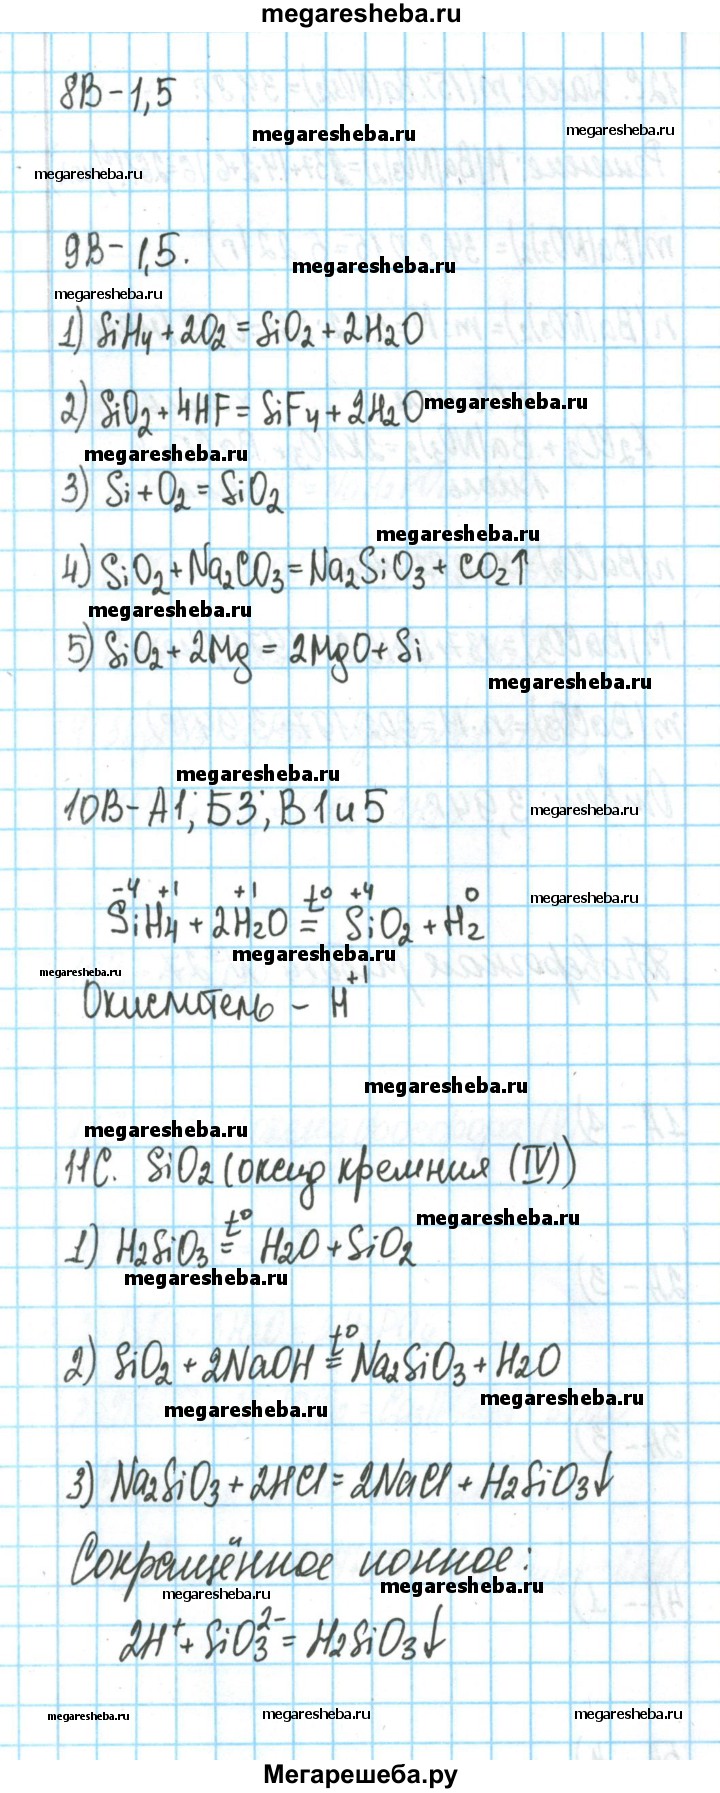 megaresheba.ru
8В-1,5
megaresheba.ru
megaresheba.ru
megaresheba.ru
9В-1,5.
megaresheba.ru
megaresheba.ru
1) SiH4 + 2O2 = SiO2 + 2H2O
2) SiO2 + 4HF = SiF4 + 2H2O
megaresheba.ru
megaresheba.ru
3) Si + O2 = SiO2
megaresheba.ru
4) SiO2 + Na2CO3 = Na2SiO3 + CO2↑
megaresheba.ru
5) SiO2 + 2Mg = 2MgO + Si
megaresheba.ru
megaresheba.ru
10В-А1; Б3; В1 и 5
megaresheba.ru
megaresheba.ru
-4 +1 +1 t° +4 0
SiH4 + 2H2O = SiO2 + H2
megaresheba.ru
megaresheba.ru
Окислитель - H+1
megaresheba.ru
megaresheba.ru
11С. SiO2 (оксид кремния (IV))
megaresheba.ru
1) H2SiO3 t°= H2O + SiO2
megaresheba.ru
2) SiO2 + 2NaOH t°= Na2SiO3 + H2O
megaresheba.ru
megaresheba.ru
3) Na2SiO3 + 2HCl = 2NaCl + H2SiO3↓
Сокращённое ионное:
megaresheba.ru
megaresheba.ru
2H+ + SiO3 2- = H2SiO3↓
megaresheba.ru
megaresheba.ru
megaresheba.ru
Мегарешеба.ру